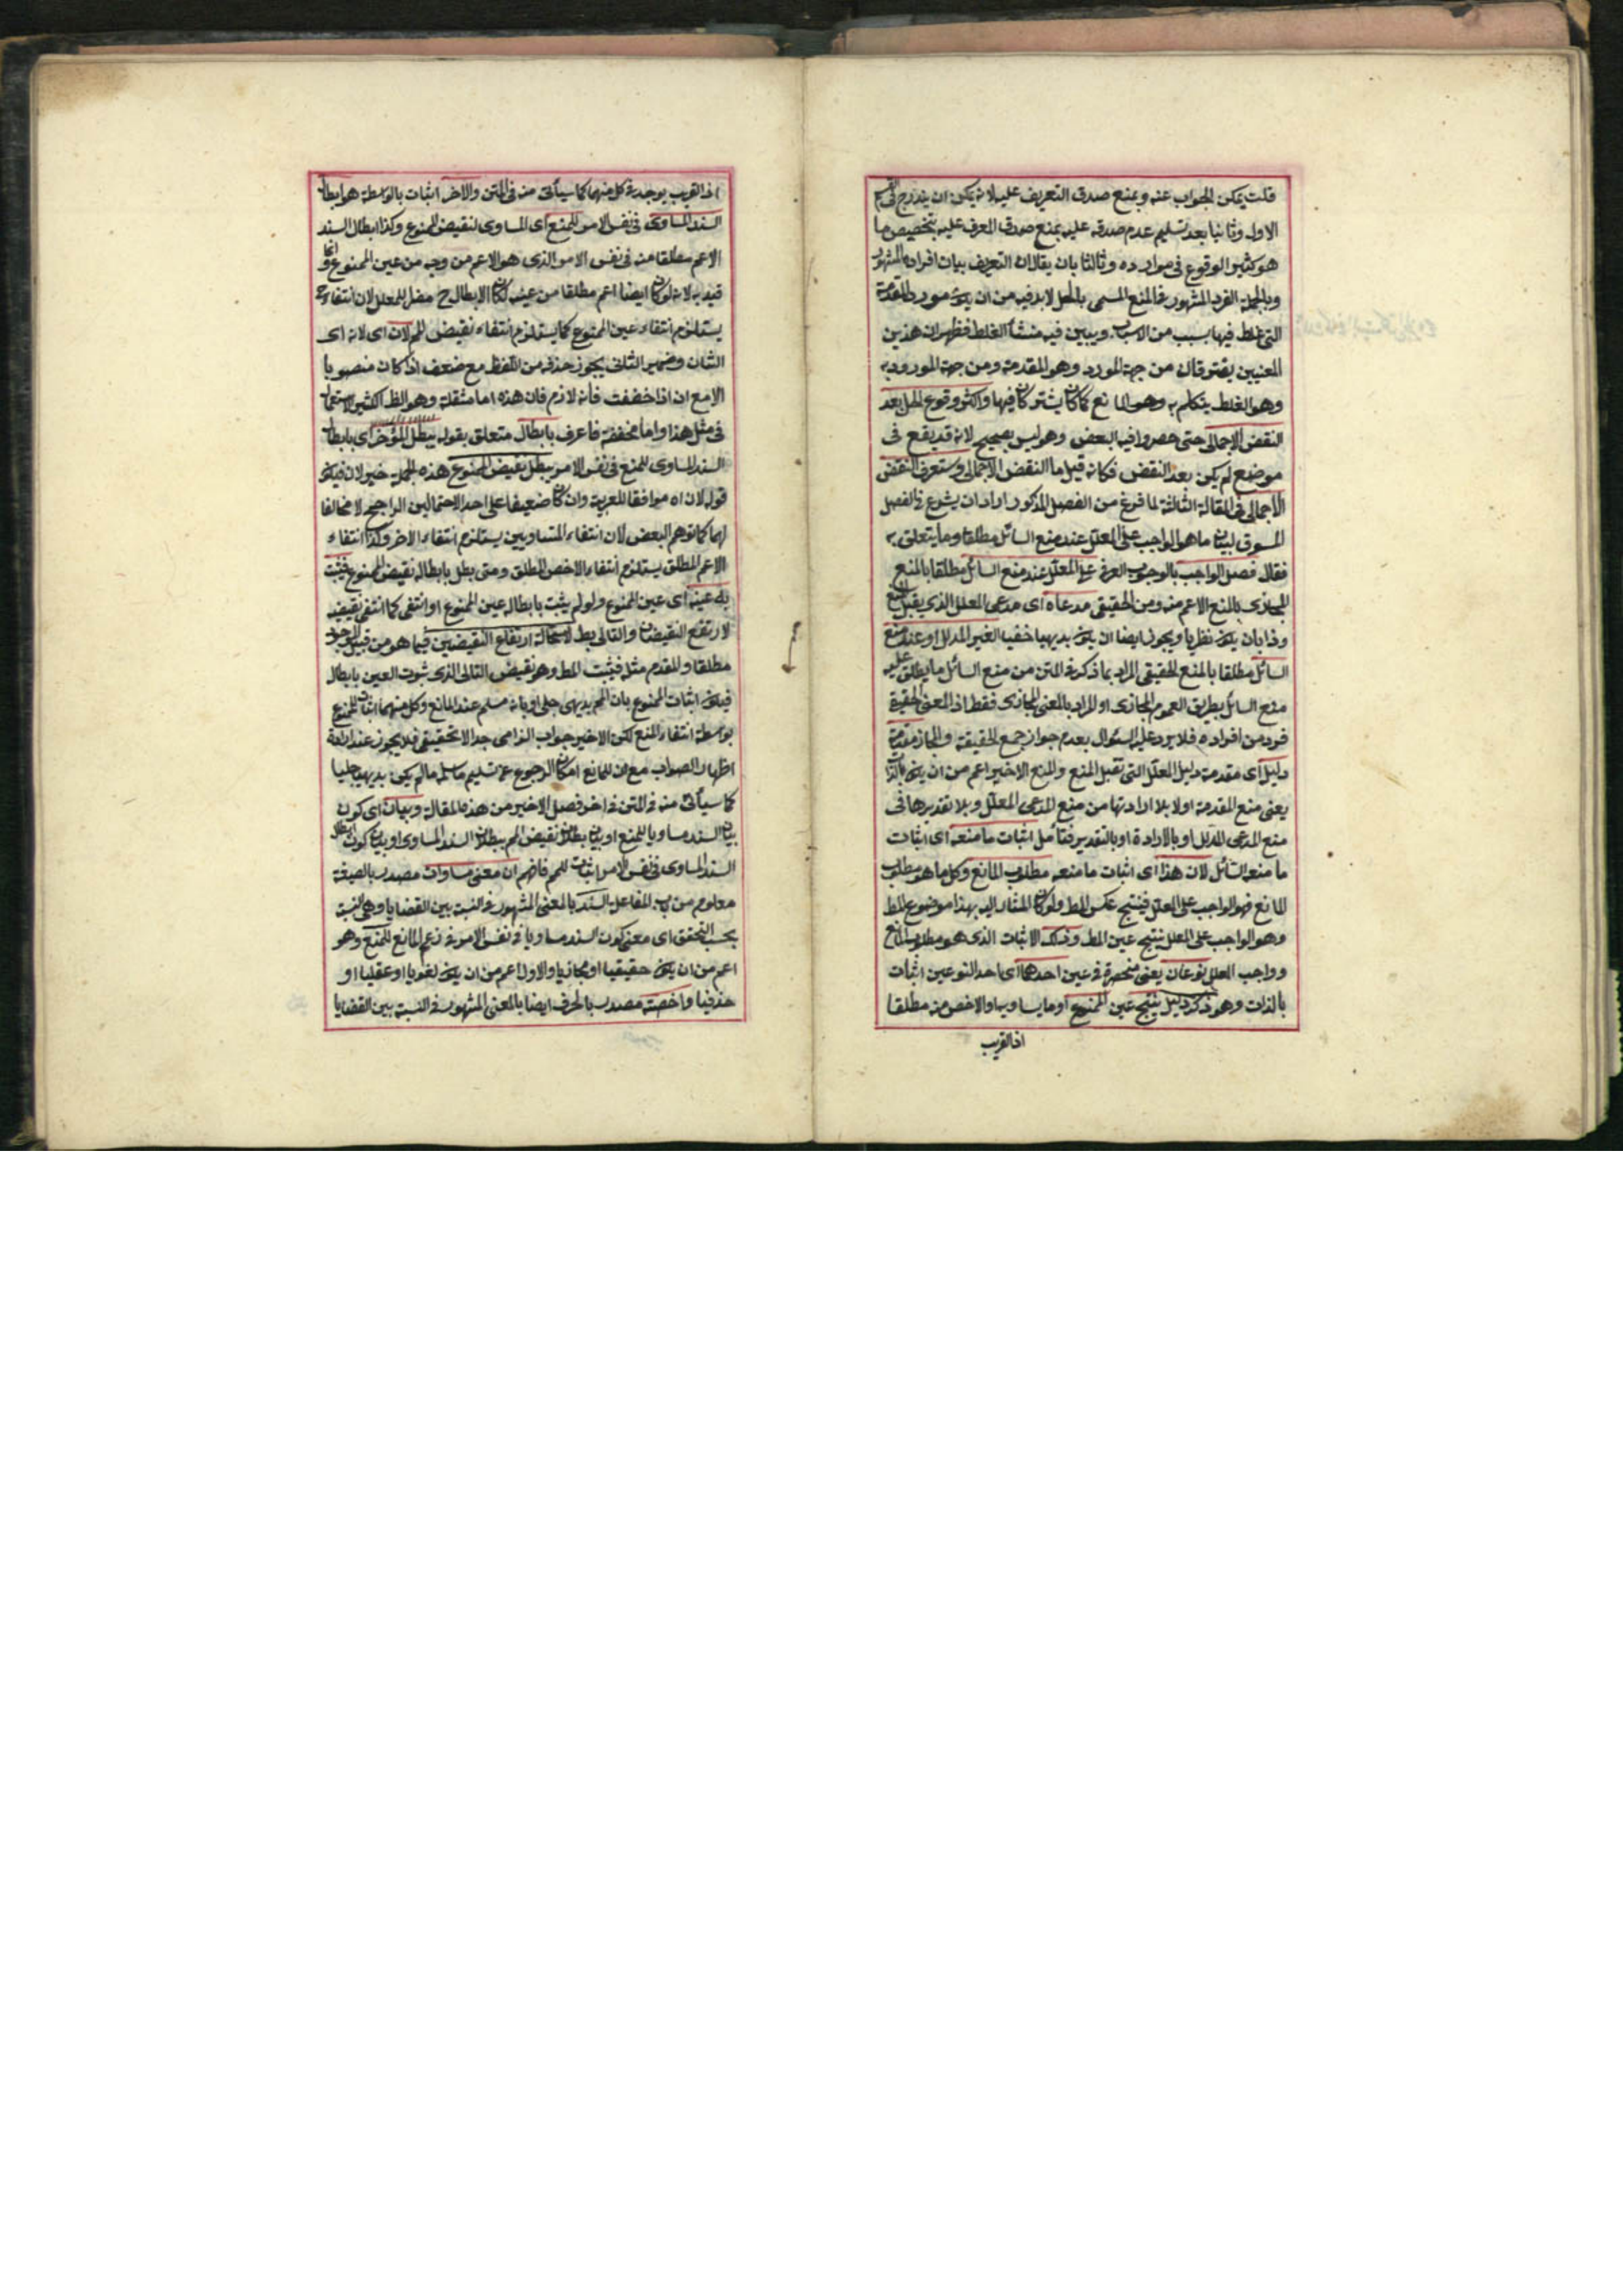 قلت يمكن الجواب عنه و بمنع صدق التعريف عليه لانه يمكن ان يندرج في
الاول وثانيا بعد تسليم عدم صدقه عليه بمنع صدق المعرف عليه بتخصيص ما
هو كثير الوقوع في موارده وثالثا بان يقال ان التعريف بيان افراده المشهور
وبالجملة الفرد المشهور فالمنع المسمى بالحل لابد فيه من ان يكون مورد المقدمة
التي غلط فيها بسبب من الاسباب ويبين فيه منشأ الغلط فظهر ان هذين
المعنيين يفترقان من جهة المورد وهو المقدمة ومن جهة المورود به
وهو الغلط يتكلم به وهو المانع كما كان يشتركان فيها واكثر وقوع الحل بعد
النقض الاجمالي حتى حصروا فيه البعض وهو ليس بصحيح لانه قد يقع في
موضع لم يكن بعد النقض فكانه قيل ما النقض الاجمالي وستعرف النقض
الاجمالي في المقالة الثالثة لما فرغ من الفصل المذكور اراد ان يشرع في الفصل
المسوق لبيان ما هو الواجب على المعلل عند منع السائل مطلقا وما يتعلق به
فقال فصل الواجب بالوجوب العرفي على المعلل عند منع السائل مطلقا بالمنع
المجازي بالمنع الاعم منه ومن الحقيقي مدعاه اى مدعى المعلل الذي يقبل المنع
وذا بان يكون نظريا ويجوز ايضا ان يكون بديهيا خفيا الغير المدلل او عند منع
السائل مطلقا بالمنع الحقيقي المراد بما ذكره في المتن من منع السائل ما يطلق عليه
منع السائل بطريق العموم المجازي او المراد بالمعنى المجازي فقط اذ المعنى الحقيقة
فرد من افراده فلا يرد عليه السئوال بعدم جواز جمع الحقيقة والمجاز مقدمة
دليل اى مقدمة دليل المعلل التي تقبل المنع والمنع الاخير اعم من ان يكون بالذات
يعنى منع المقدمة اولا بلا ارادتها من منع المدعى المعلل وبلا تقديرها في
منع المدعى المدلل او بالارادة او بالتقدير فتأمل اثبات ما منعه اى اثبات
ما منعه السائل لان هذا اى اثبات ما منعه مطلوب المانع وكل ما هو مطلوب
المانع فهو الواجب على المعلل فينتج عكس المط ولو كان المشار اليه بهذا موضوع المط
وهو الواجب على المعلل ينتج عين المط وذلك الاثبات الذى هو مطلوب المانع
وواجب المعلل نوعان يعنى منحصرة في عين احدهما اى احد النوعين اثبات
بالذات وهو ذكر دليل ينتج عين الممنوع او ما يساويه او الاخص منه مطلقا
اذ القريب
اذ القريب يوجد في كل منهما كما سيأتى منه في المتن والاخر اثبات بالواسطة هو ابطال
السند المساوى في نفس الامر للمنع اى المساوى لنقيض الممنوع وكذا ابطال السند
الاعم مطلقا منه في نفس الامر الذى هو الاعم من وجه من عين الممنوع وانما
قيد به لانه لو كان ايضا اعم مطلقا من عينه لكان الابطال ح مضرا للمعلل لان انتفاءه
يستلزم انتفاء عين الممنوع كما يستلزم انتفاء نقيض المم لان اى لانه اى
الشان وضمير الشان يجوز حذفه من اللفظ مع ضعف اذا كان منصوبا
الا مع ان اذا خففت فانه لازم فان هذه اما مثقلة وهو الظ الكثير الاستعمال
في مثل هذا واما مخففة فاعرف بابطال متعلق بقوله يبطل المؤخر اى بابطال
السند المساوى للمنع في نفس الامر يبطل نقيض الممنوع هذه الجملة خبر لان فيكون
قوله لان اه موافقا للعربية وان كان ضعيفا على احد الاحتمالين الراجح لا مخالفا
لهما كما توهم البعض لان انتفاء المتساويين يستلزم انتفاء الاخر وكذا انتفاء
الاعم المطلق يستلزم انتفاء الاخص المطلق ومتى بطل بابطاله نقيض الممنوع فيثبت
به عينه اى عين الممنوع ولو لم يثبت بابطاله عين الممنوع او انتفى كما انتفى نقيضه
لارتفع النقيضان والتالى بط لاستحالة ارتفاع النقيضين فيما هو من قبيل الوجود
مطلقا والمقدم مثله فيثبت المط وهو نقيض التالى الذى ثبوت العين بابطال
فيكون اثبات الممنوع بان المم بديهى جلى او بانه مسلم عند المانع وكل منهما اثبات للمنوع
بواسطة انتفاء المنع لكن الاخير جواب الزامى جدلا تحقيقى فلا يجوز عند ارادة
اظهار الصواب مع ان للمانع امكان الرجوع عن تسليم ما سلمه ما لم يكن بديهيا جليا
كما سيأتى منه في المتن في اخر فصل الاخير من هذه المقالة وبيان اى كون
بيان السند مساويا للمنع او بيان بطلان نقيض المم ببطلان السند المساوى او بيان كون ابطال
السند المساوى في نفس الامر اثبات للمم فافهم ان معنى مساوات مصدر بالصيغة
معلوم من باب المفاعل السند بالمعنى المشهور في النسبة بين القضايا وهى النسبة
بحسب التحقق اى معنى كون السند مساويا في نفس الامر في زعم المانع للمنع وهو
اعم من ان يكون حقيقيا او مجازيا والاول اعم من ان يكون لغويا او عقليا او
حذفيا واخصية مصدر بالحرف ايضا بالمعنى المشهور في النسبة بين القضايا